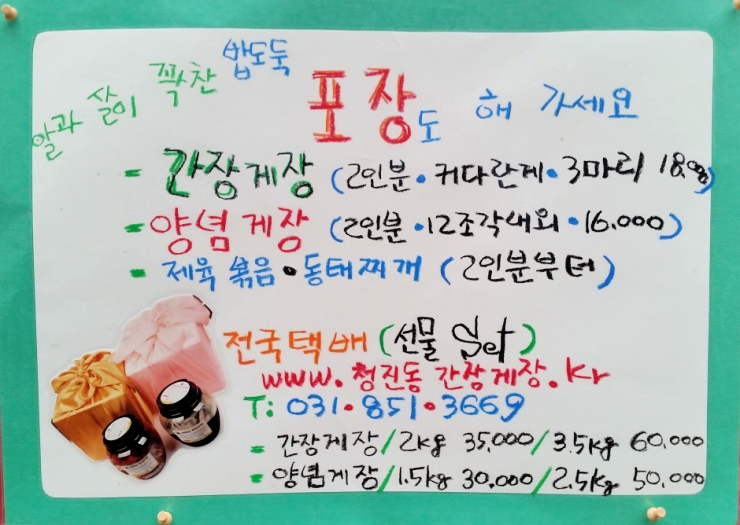 알과 살이 꽉찬 밥도둑
포장도 해 가세요
- 간장게장 (2인분·커다란게·3마리 18.000)
- 양념게장 (2인분·12조각내외·16.000)
- 제육볶음·동태찌개 (2인분부터)
전국택배 (선물 Set)
www.청진동간장게장.kr
T: 031·851·3669
= 간장게장/2kg 35.000/3.5kg 60.000
= 양념게장/1.5kg 30.000/2.5kg 50.000